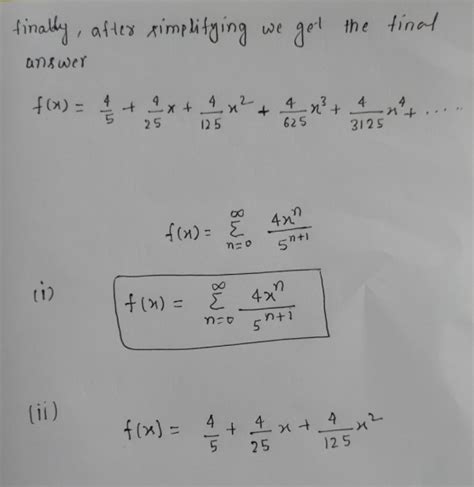 finally, after simplifying we get the final
answer
f(x) = 4/5 + 4/25 x + 4/125 x² + 4/625 x³ + 4/3125 x⁴ + .....
f(x) = ∞ Σ n=0 4xⁿ/5ⁿ⁺¹
(i) f(x) = ∞ Σ n=0 4xⁿ/5ⁿ⁺¹
(ii) f(x) = 4/5 + 4/25 x + 4/125 x²